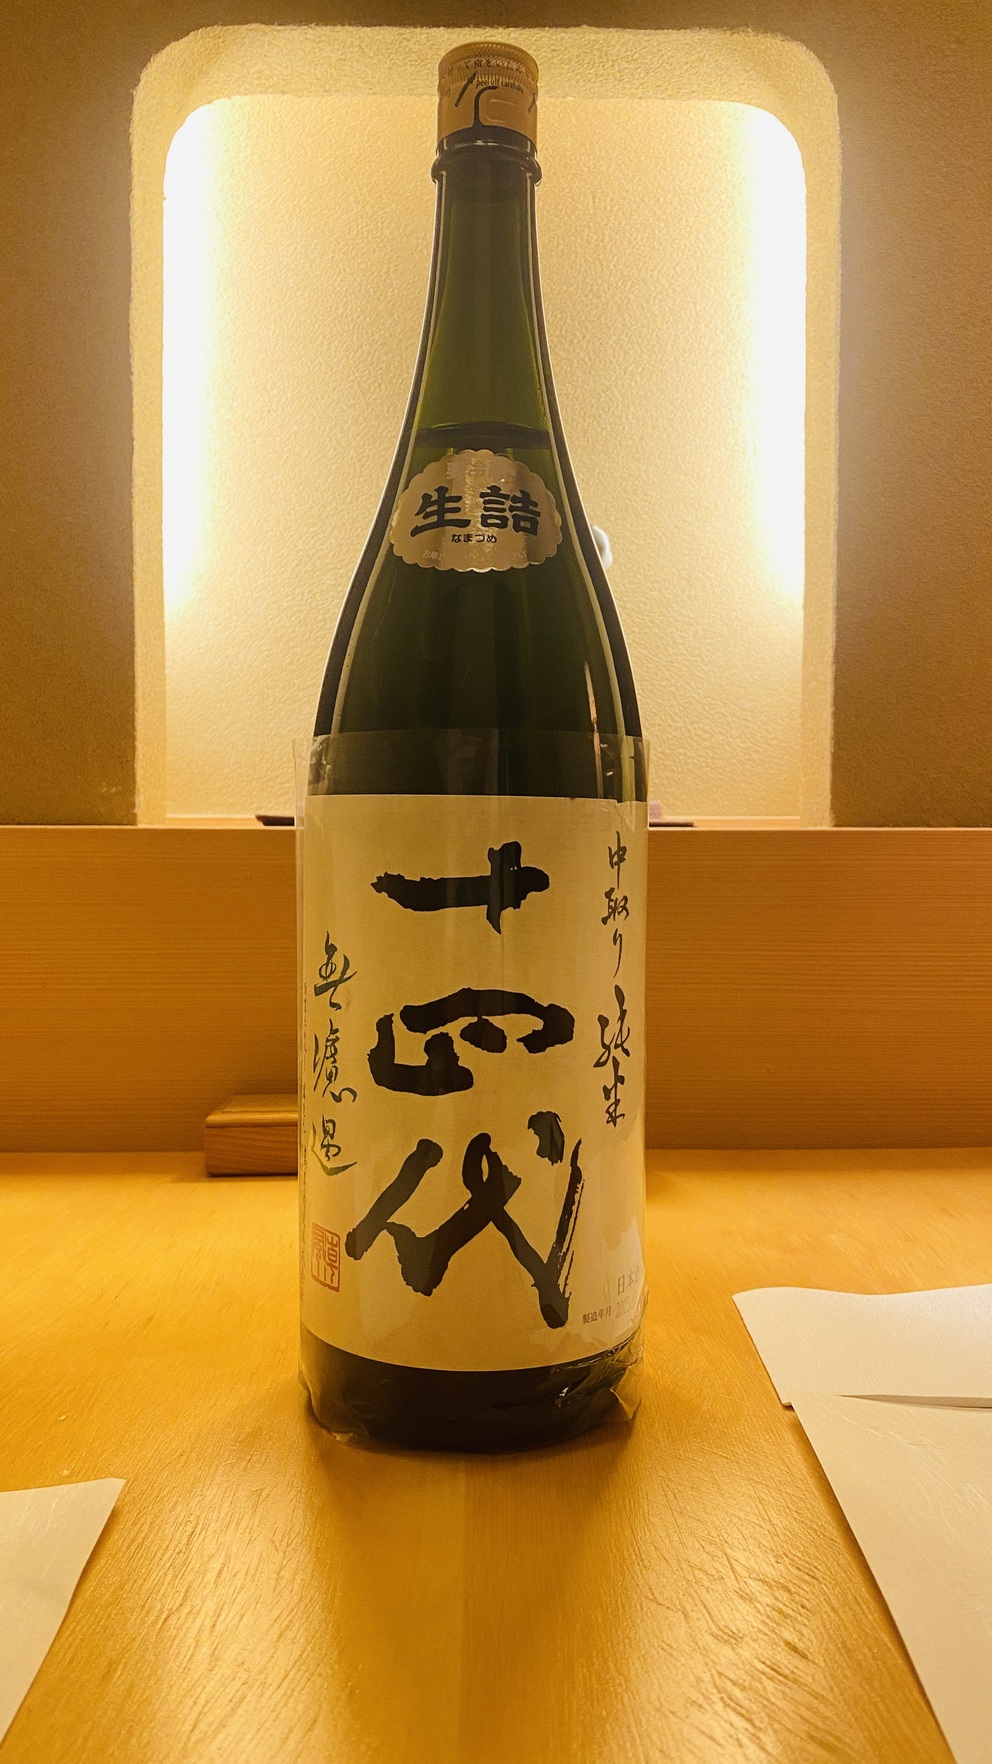 生詰
なまづめ
中取り純米
十四代
無濾過
日本酒
製造年月